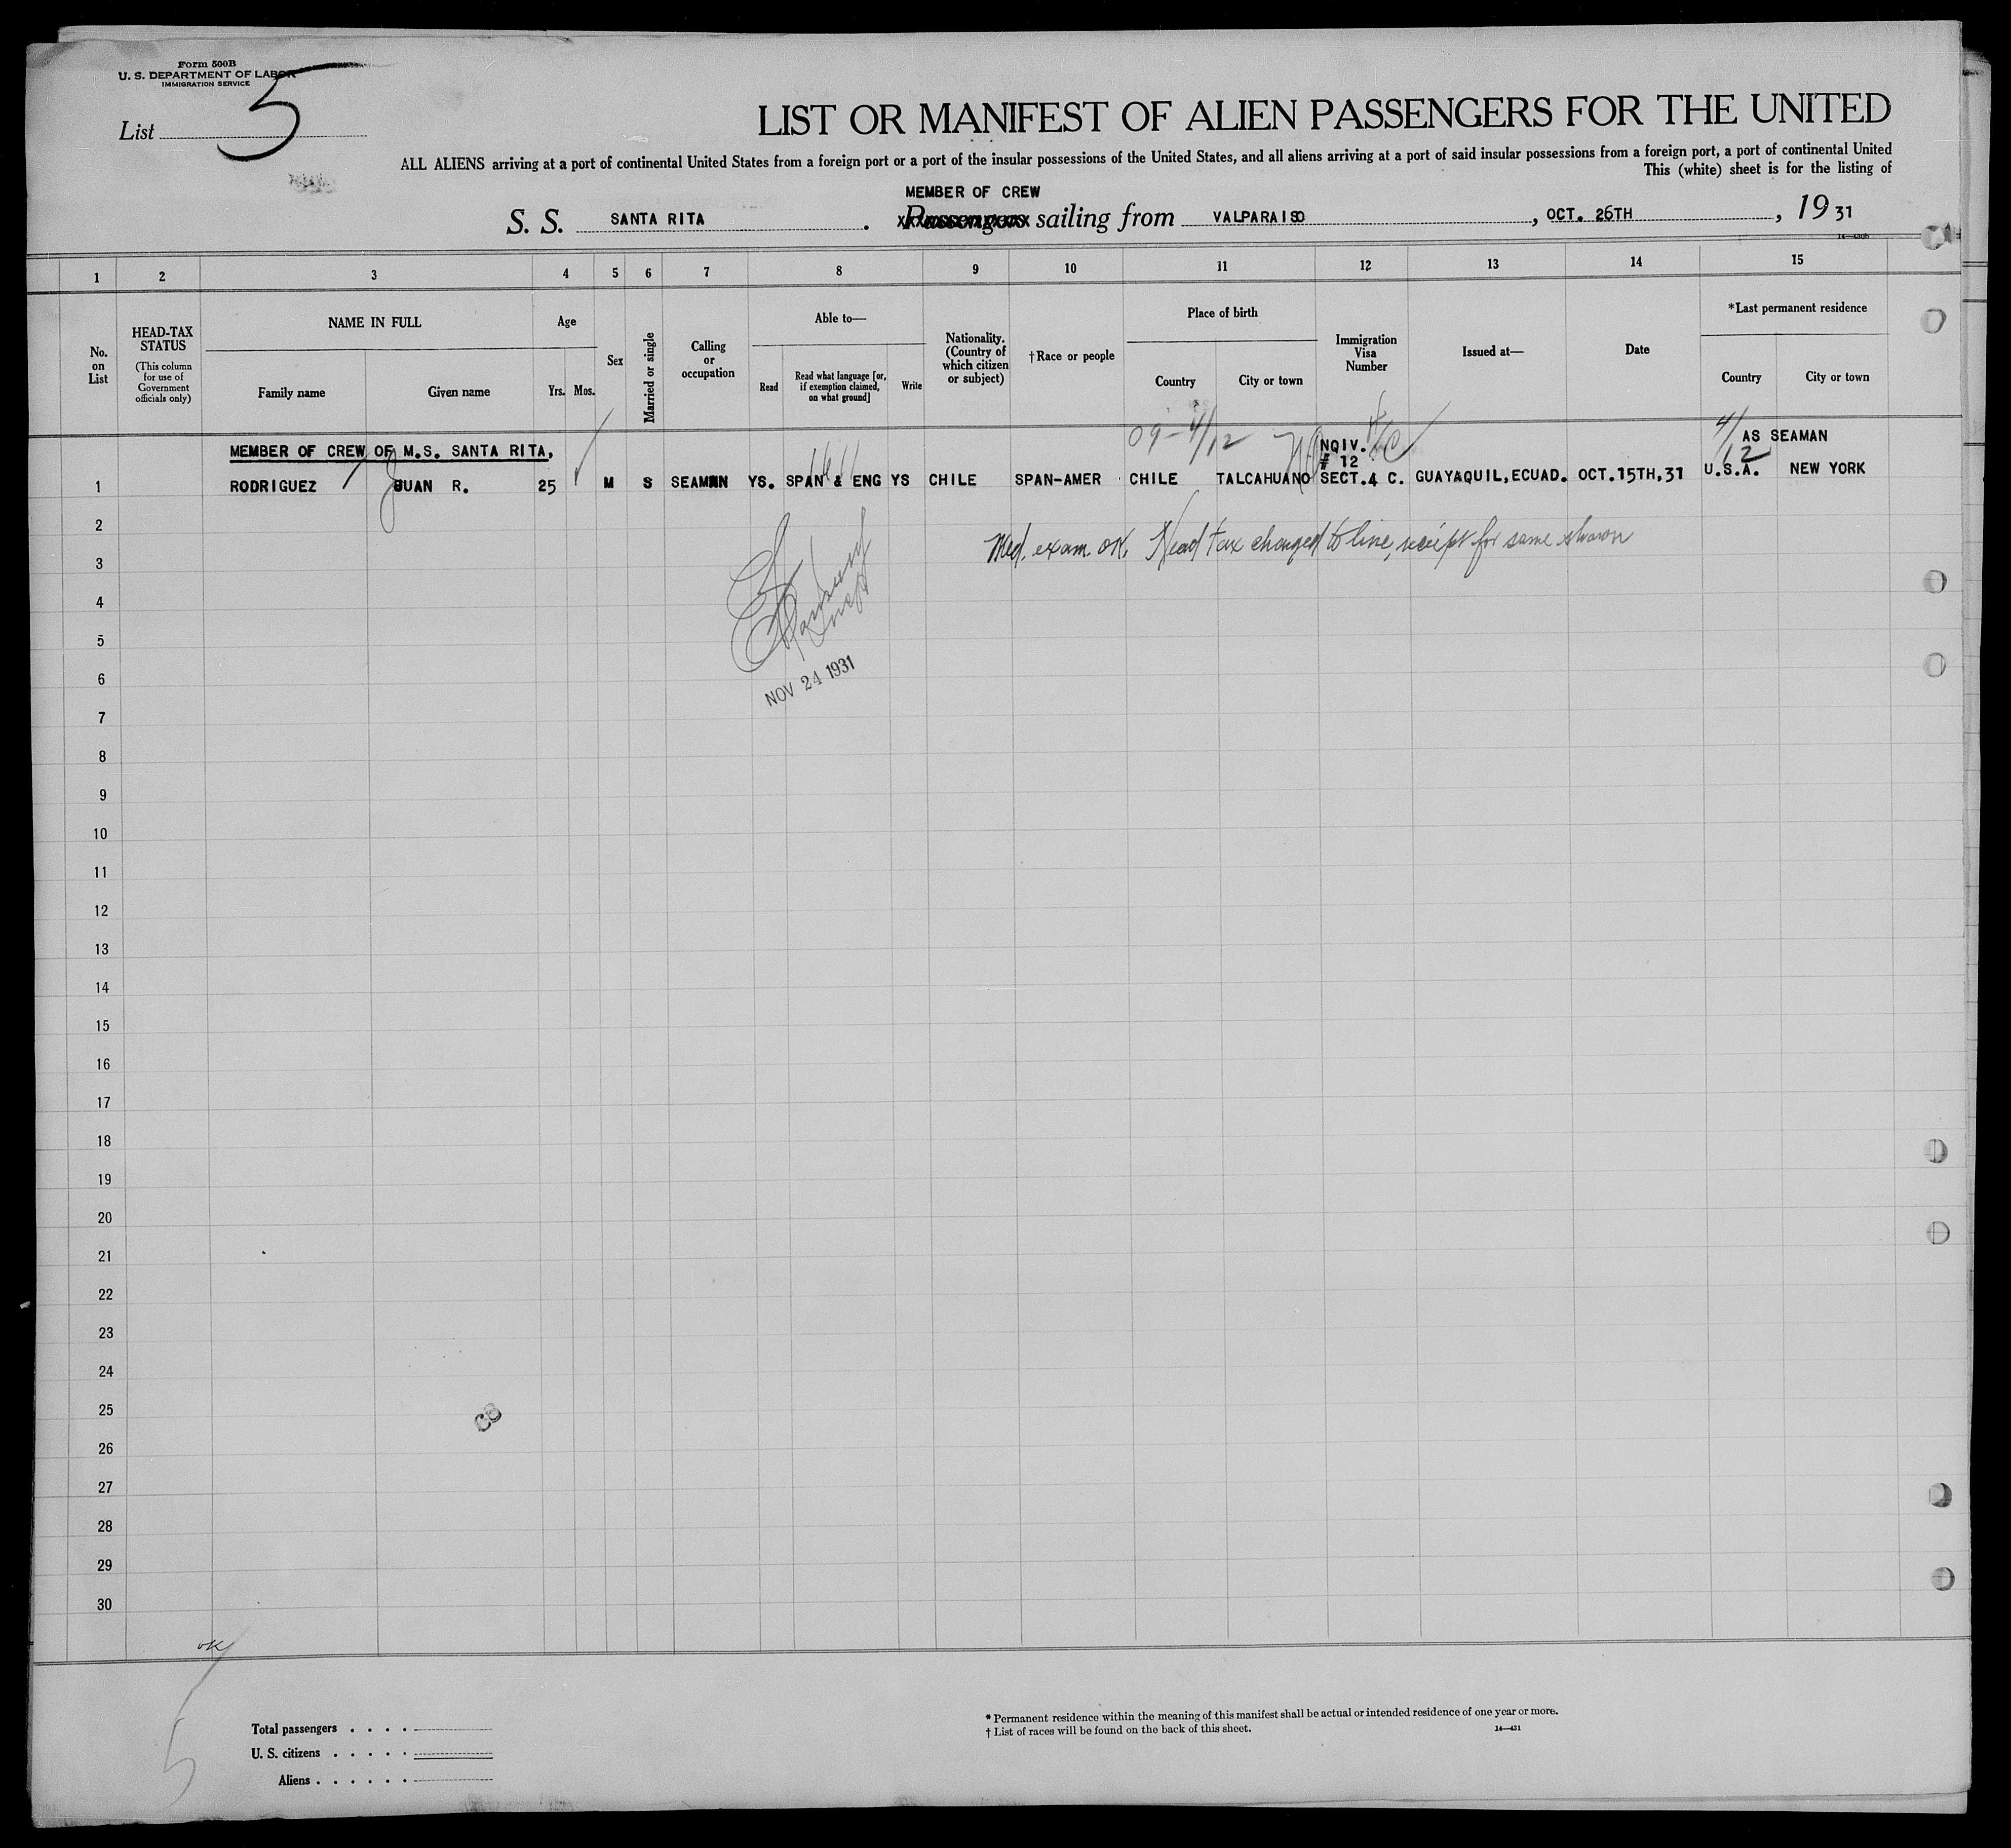 Form 500B
U. S. DEPARTMENT OF LABOR
IMMIGRATION SERVICE
List 5
LIST OR MANIFEST OF ALIEN PASSENGERS FOR THE UNITED
ALL ALIENS arriving at a port of continental United States from a foreign port or a port of the insular possessions of the United States, and all aliens arriving at a port of said insular possessions from a foreign port, a port of continental United
This (white) sheet is for the listing of
MEMBER OF CREW
S. S. SANTA RITA . Passengers sailing from VALPARAISO , OCT. 26TH , 1931
1 2 3 4 5 6 7 8 9 10 11 12 13 14 15
No. on List
HEAD-TAX STATUS
(This column for use of Government officials only)
NAME IN FULL
Family name Given name
Age
Yrs. Mos.
Sex
Married or single
Calling or occupation
Able to—
Read
Read what language [or, if exemption claimed, on what ground]
Write
Nationality. (Country of which citizen or subject)
†Race or people
Place of birth
Country City or town
Immigration Visa Number
Issued at—
Date
*Last permanent residence
Country City or town
09-4/12
4/12
MEMBER OF CREW OF M.S. SANTA RITA, NQIV. AS SEAMAN
# 12
1 RODRIGUEZ JUAN R. 25 M S SEAMAN YS. SPAN & ENG YS CHILE SPAN-AMER CHILE TALCAHUANO SECT.4 C. GUAYAQUIL,ECUAD. OCT.15TH,31 U.S.A. NEW YORK
2
Med. exam OK. Head tax changed to line, receipt for same shown
3
4
5
6
NOV 24 1931
7
8
9
10
11
12
13
14
15
16
17
18
19
20
21
22
23
24
25
26
27
28
29
30
OK
5
Total passengers . . . .
U. S. citizens . . . . .
Aliens . . . . . .
* Permanent residence within the meaning of this manifest shall be actual or intended residence of one year or more.
† List of races will be found on the back of this sheet.
14—431